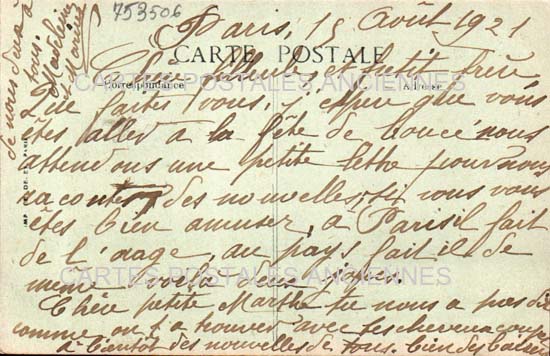 753506
Paris, 15 Août 1921
CARTE POSTALE
Correspondance
Adresse
CARTES POSTALES ANCIENNES
petit frère
Que faites vous, espère que vous
êtes allez à la fête de Boucé nous
attendons une petite lettre pour nous
raconter des nouvelles, si vous vous
êtes bien amuser, à Paris il fait
de l'orage, au pays fait il de
même voilà deux
CARTES POSTALES ANCIENNES
Chère petite Marthe tu nous a pas dit
comme on t'a trouver avec tes cheveux coupé
à bientôt des nouvelles de tous. bien des baisers
de nous deux à
tous.
Madeleine